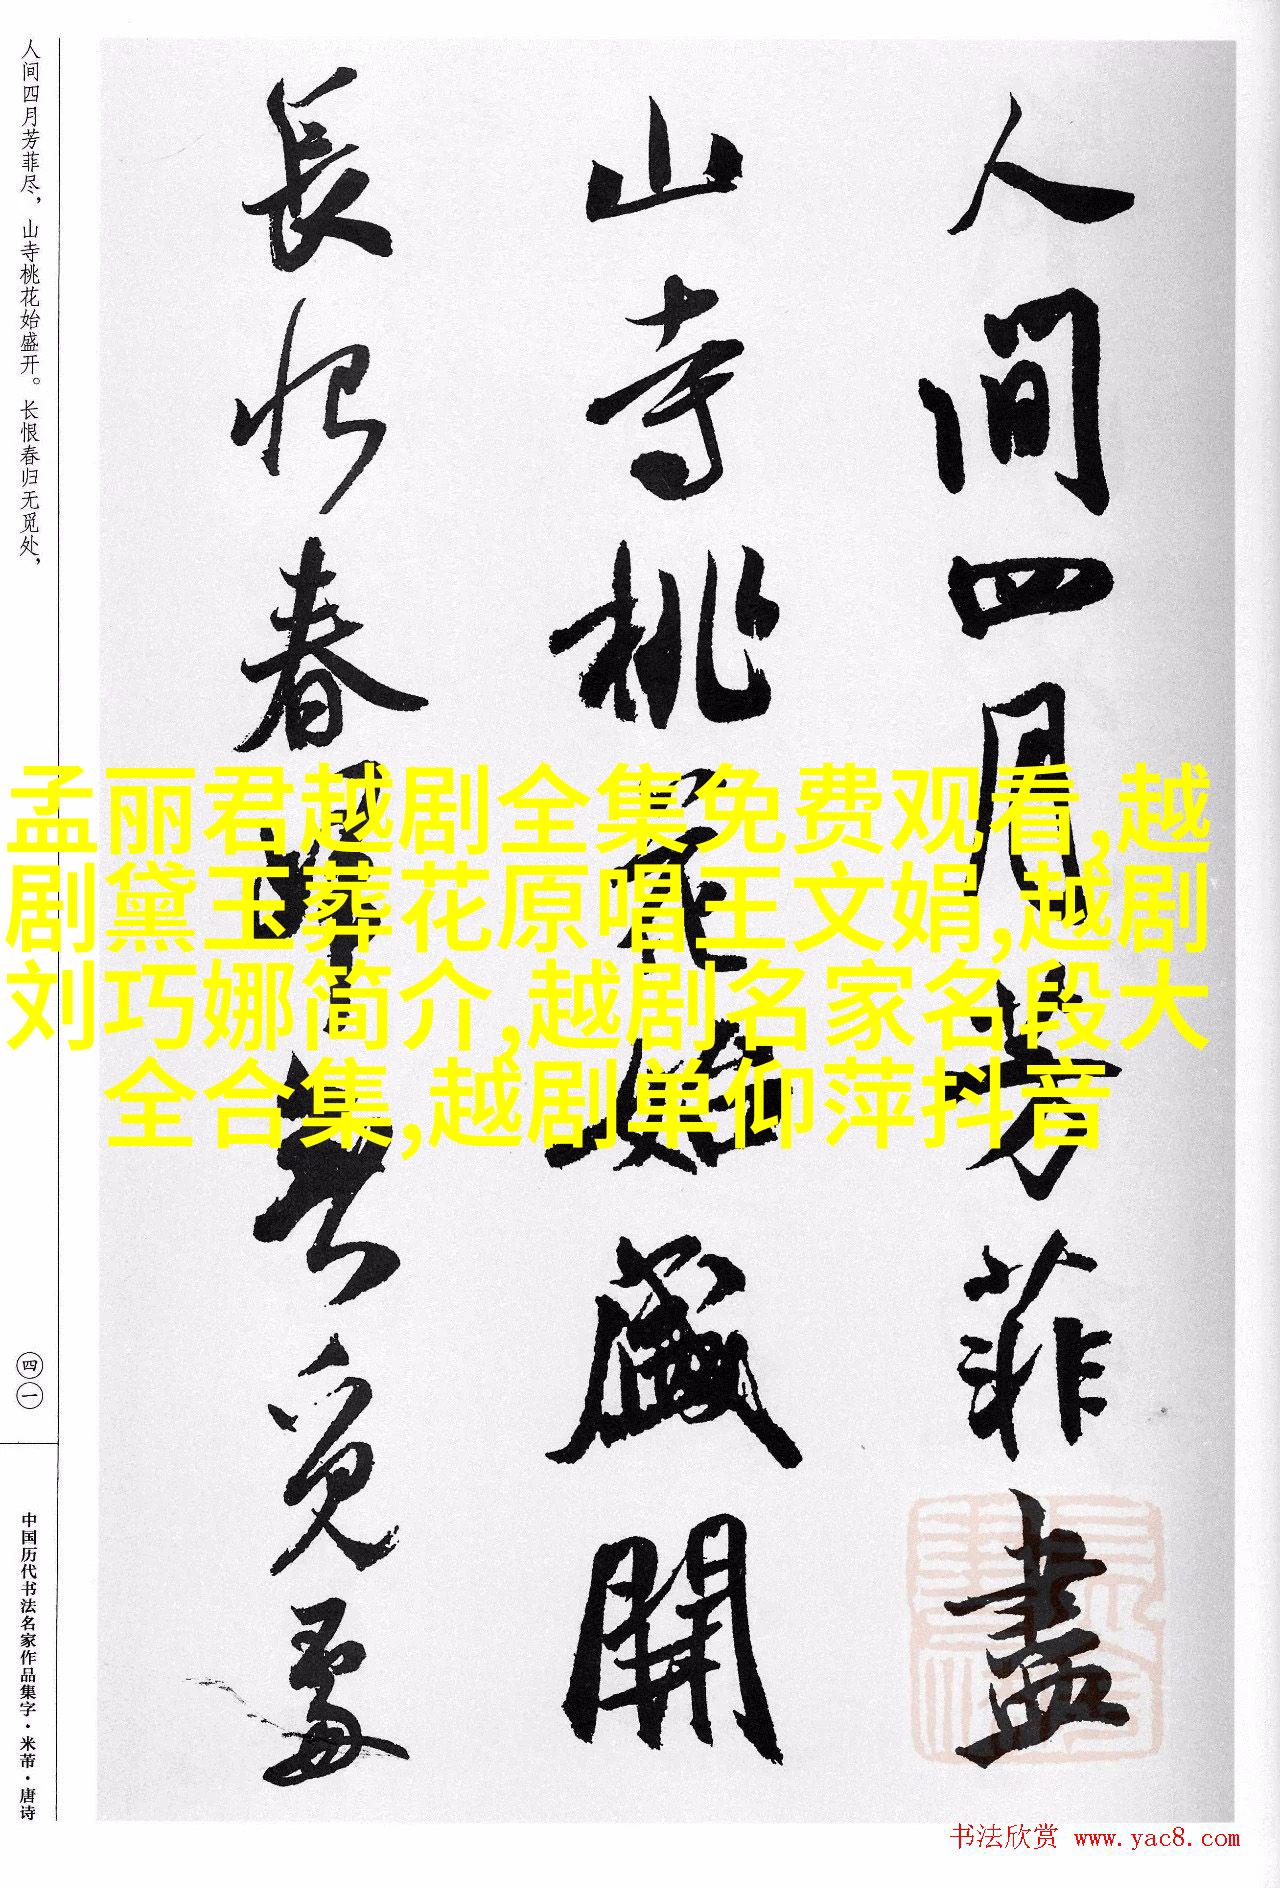 人间四月芳菲尽，山寺桃花始盛开。长恨春归无觅处，
人間四月芳菲盡
山寺桃花始盛開
長恨春歸無覓處
孟丽君越剧全集免费观看,越
剧黛玉葬花原唱王文娟,越剧
刘巧娜简介,越剧名家名段大
全合集,越剧单仰萍抖音
四一
中国历代书法名家作品集字·米芾·唐诗
书法欣赏 www.yac8.com